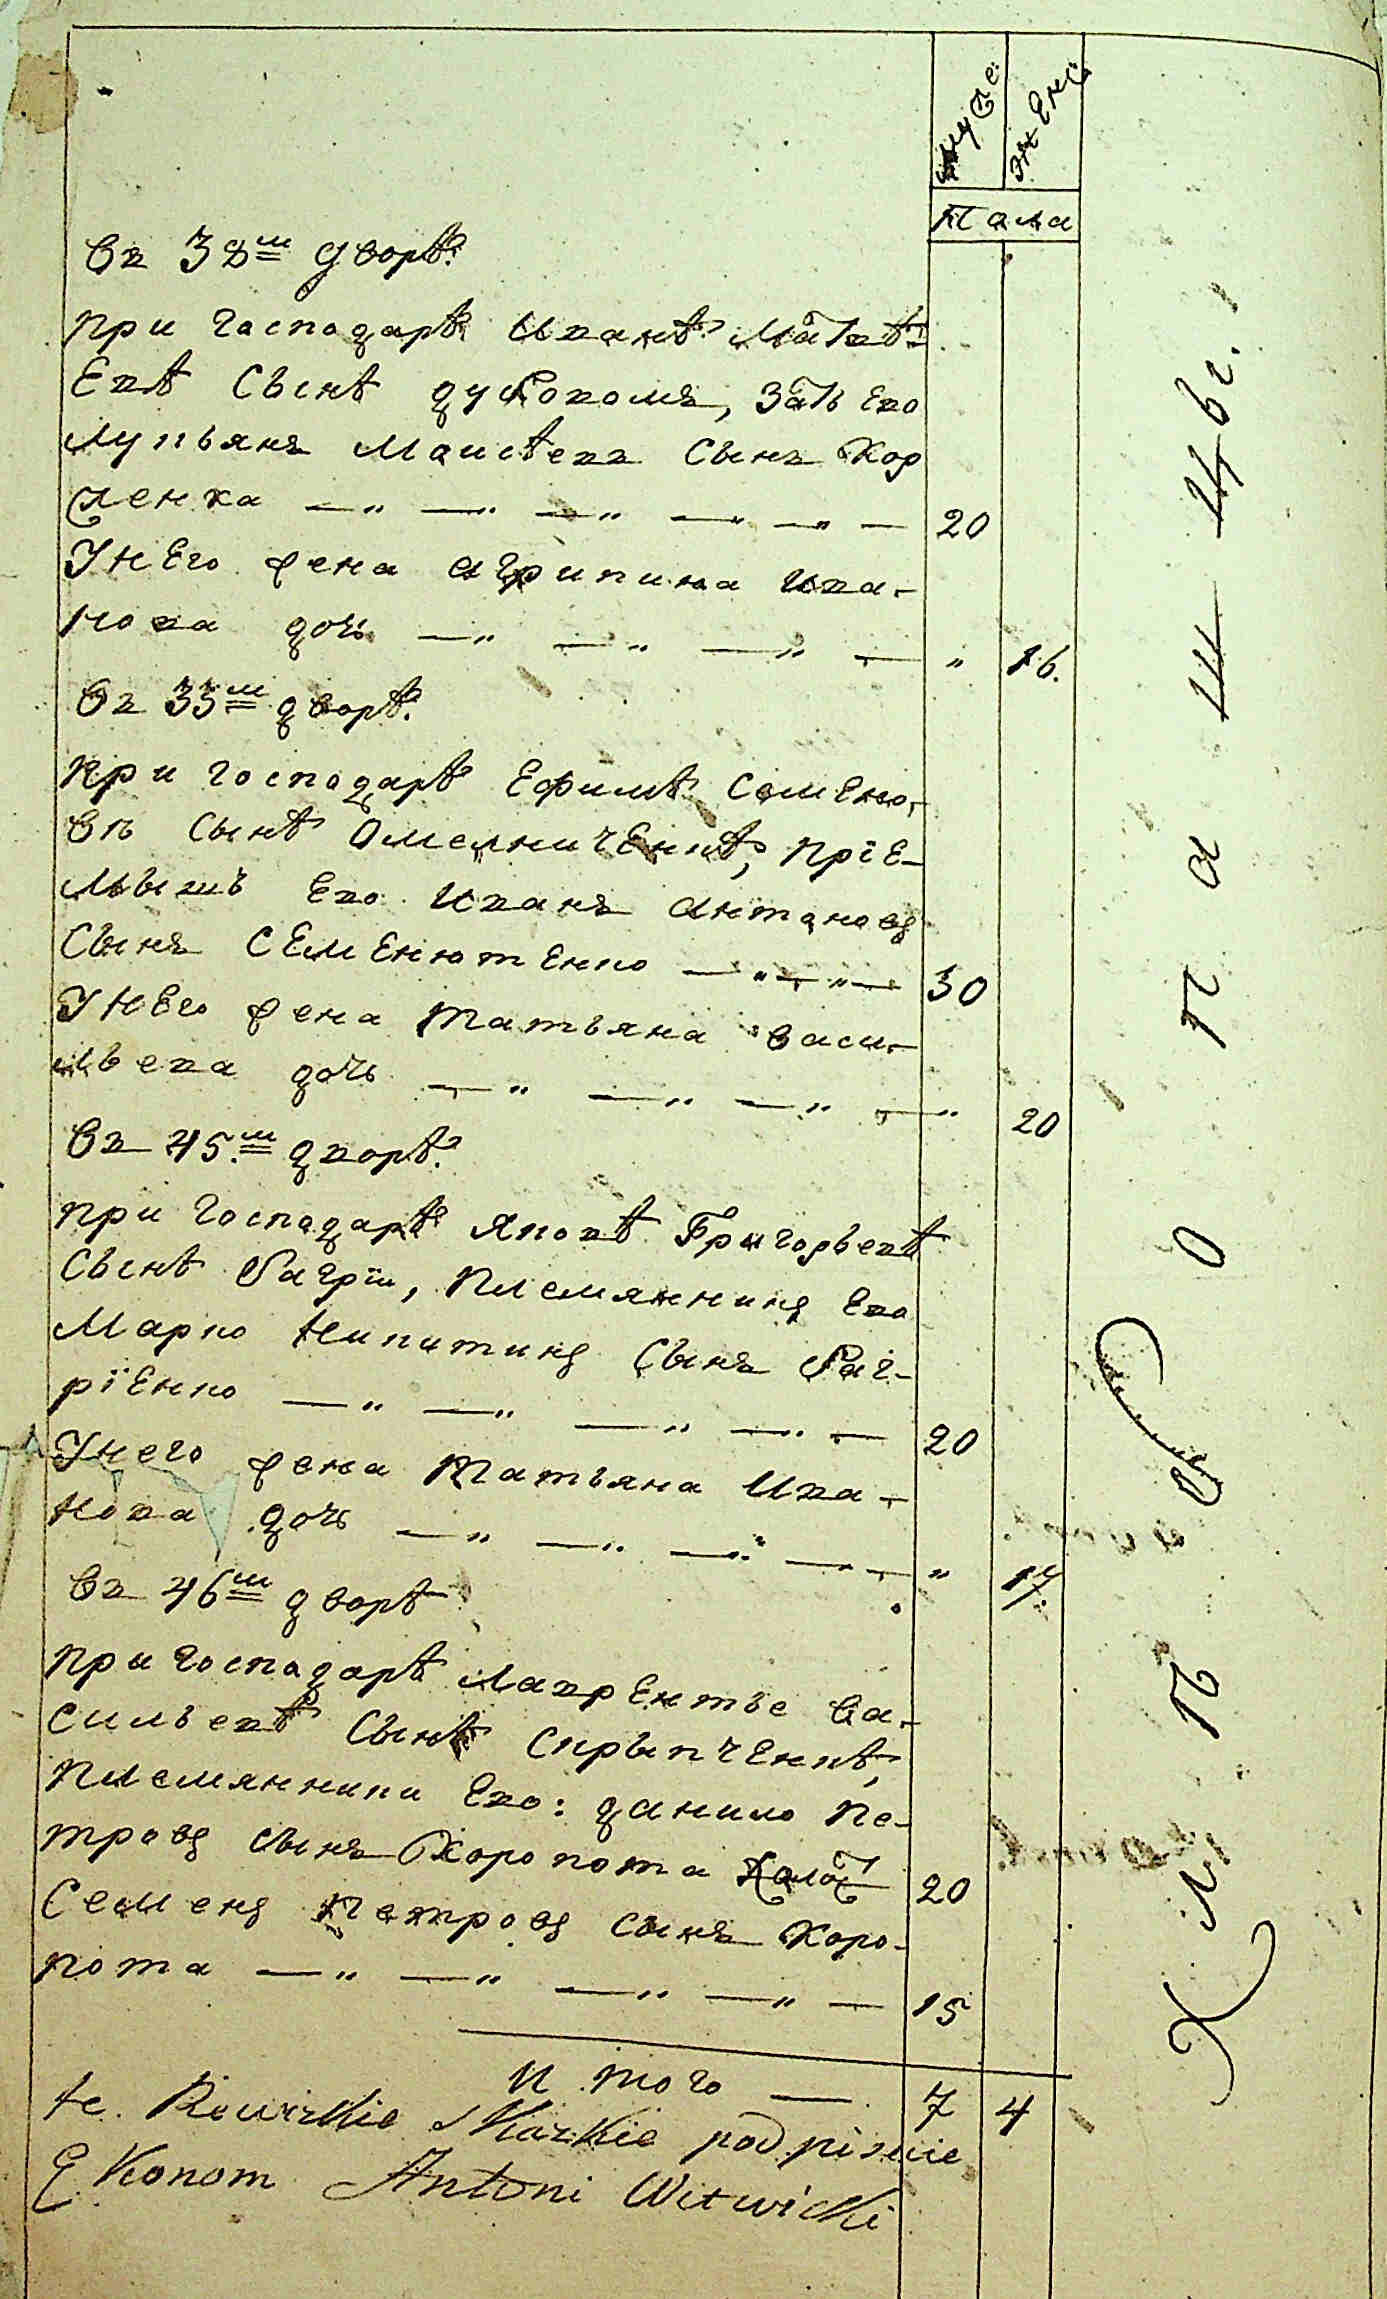 муже:
жене
пола
Въ 32м дворѣ
при господарѣ Иванѣ Матвѣ
Евѣ сынѣ дубовомъ, зать Ево
Лупьянъ Моисѣевъ сынъ Кор
сленка — „ — „ — „ — „ — „ — 20
У Него жена Агрипина Ива-
нова дочь — „ — „ — „ — „ 16.
Въ 33м дворѣ
при господарѣ Ефимѣ Семено-
вѣ сынѣ Омелниченкѣ, прїе-
мышъ Ево Иванъ Антоновъ
сынъ Семенютенко — „ — „ — 30
У Него жена Татьяна Васи-
льева дочь — „ — „ — „ — „ 20
Въ 45.м дворѣ
при господарѣ Яковѣ Григорьевѣ
сынѣ Багрїи, племянникъ Ево
Марко Никитинъ сынъ Баг-
рїенко — „ — „ — „ — „ — 20
У него жена Татьяна Ива-
нова дочь — „ — „ — „ — „ 17.
Въ 46м дворѣ
при господарѣ Лаврентье Ва-
сильевѣ сынѣ Скрыпченкѣ,
племянники Ево: данило пе-
тровъ сынъ Коропота холост 20
Семенъ петровъ сынъ Коро-
пота — „ — „ — „ — „ — 15
И того — 7 4
te Rewizkie Skazkie podpisuie
Ekonom Antoni Witwicki